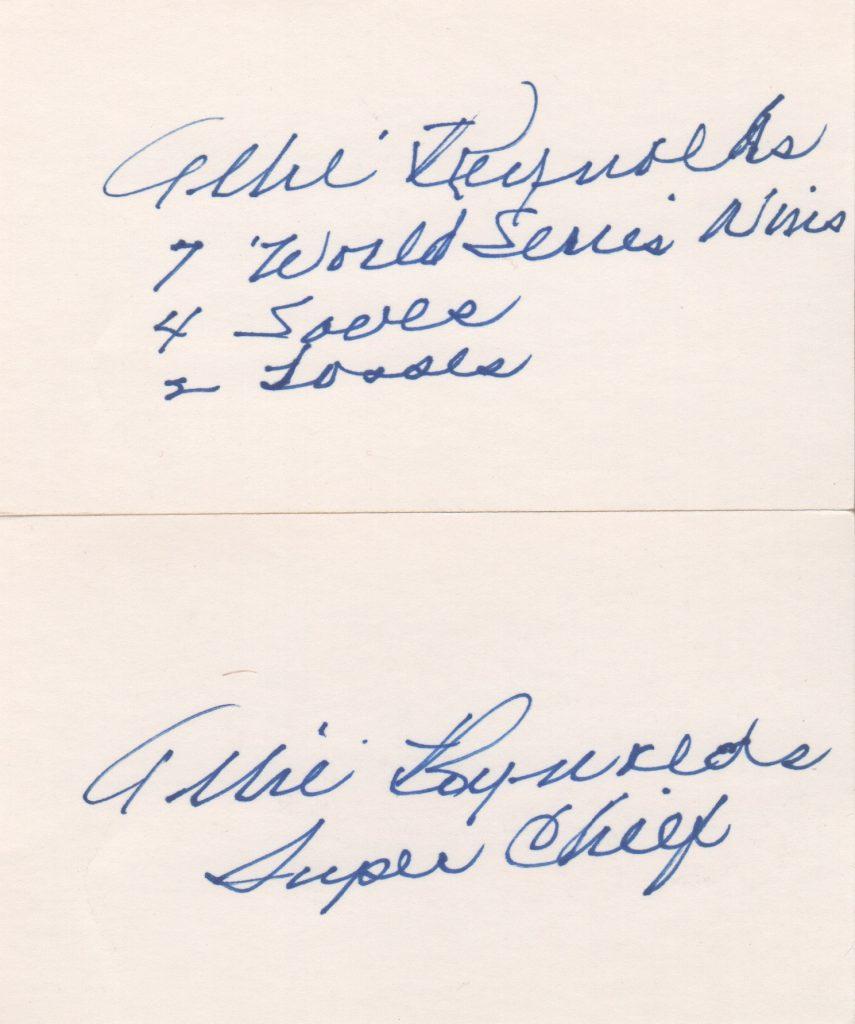 Allie Reynolds
7 World Series Wins
4 Saves
2 Losses
Allie Reynolds
Super Chief